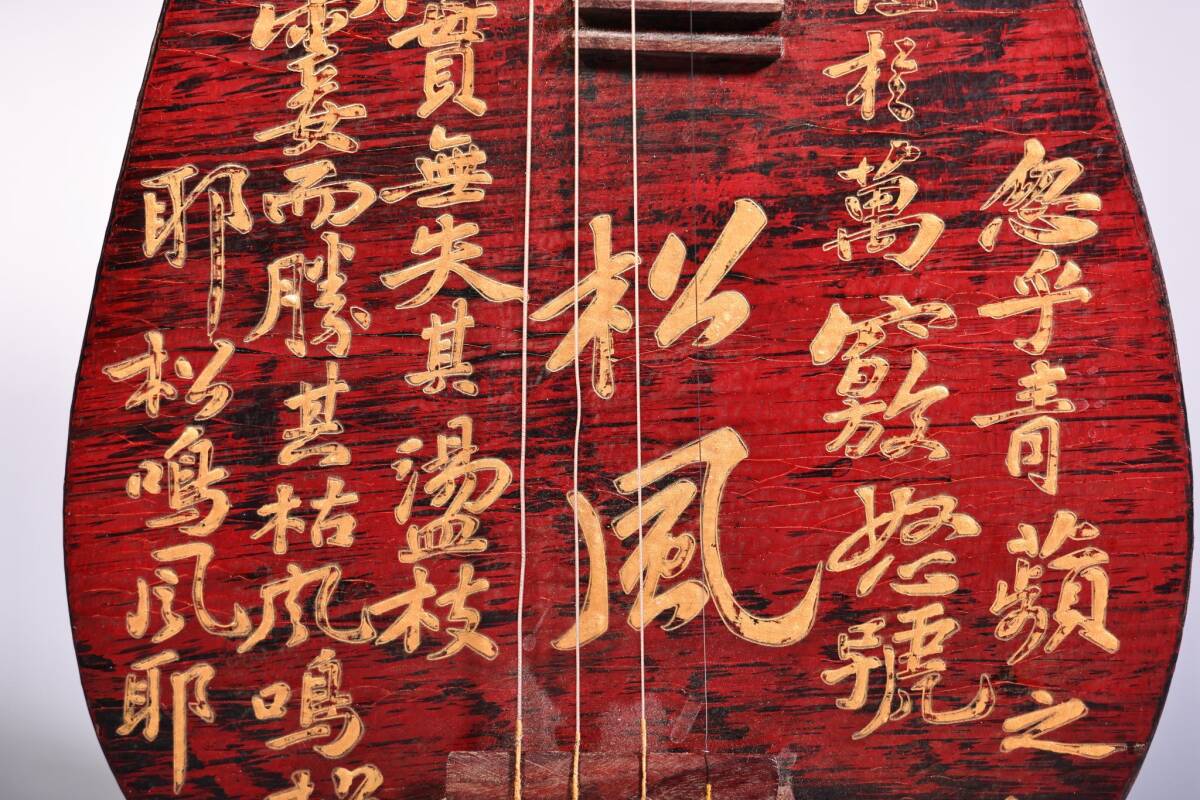 忽乎青蘋之
於萬竅怒號
松風
實無失其盪枝
而勝其枯風鳴
耶松鳴風耶